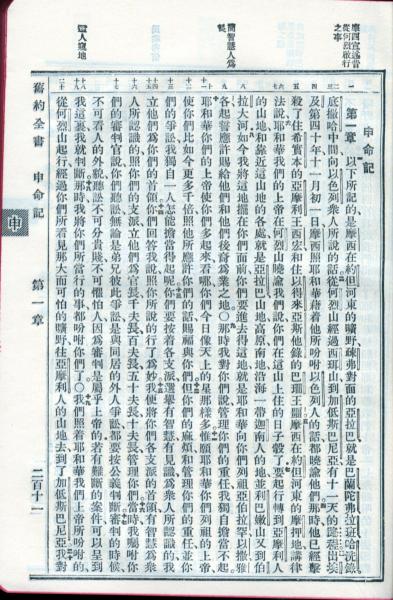 摩西宣述昔
從何烈啟行
之事
簡智慧人為
長
遣人窺地
申命記
第一章 以下所記的、是摩西在約但河東的曠野、疎弗對面的亞拉巴、就是巴蘭陀弗拉班哈洗錄
底撒哈中間、向以色列衆人所說的話。從何烈山經過西珥山、到加低斯巴尼亞有十一天的路程。出埃
及第四十年十一月初一日、摩西照耶和華藉着他所吩咐以色列人的話、都曉諭他們。那時他已經擊
殺了住希實本的亞摩利王西宏、和住以得來亞斯他錄的巴珊王噩。摩西在約但河東的摩押地講律
法說、耶和華我們的上帝在何烈山曉諭我們說、你們在這山上住的日子彀了。要起行轉到亞摩利人
的山地、和靠近這山地的各處、就是亞拉巴山地高原南地沿海一帶迦南人的地、並利巴嫩山又到伯
拉大河。如今我將這地擺在你們面前、你們要進去得這地、就是耶和華向你們列祖亞伯拉罕以撒雅
各起誓應許賜給他們和他們後裔為業之地。〇那時我對你們說、管理你們的重任、我獨自擔當不起。
耶和華你們的上帝使你們多起來、看哪、你們今日像天上的星那樣多。惟願耶和華你們列祖的上帝、
使你們比如今更多千倍、照他所應許你們的話賜福與你們。但你們的麻煩、和管理你們的重任、並你
們的爭訟、我獨自一人怎能擔當得起呢。你們要按着各支派、選舉有智慧、有見識、為衆人所認識的、我
立他們為你們的首領。你們回答我說、照你所說的行了為妙。我便將你們各支派的首領、有智慧為衆
人所認識的、照你們的支派、立他們為官長、千夫長、百夫長、五十夫長、十夫長、管理你們。當時我囑咐你
們的審判官說、你們聽訟、無論是弟兄彼此爭訟、是與同居的外人爭訟、都要按公義判斷。審判的時候、
不可看人的外貌、聽訟不可分貴賤、不可懼怕人、因為審判是屬乎上帝的。若有難斷的案件、可以呈到
我這裏、我就判斷。那時我將你們所當行的事都吩咐你們了。〇我們照着耶和華我們上帝所吩咐的、
從何烈山起行、經過你們所看見那大而可怕的曠野、往亞摩利人的山地去、到了加低斯巴尼亞。我對
舊約全書 申命記 第一章 二百十一
申